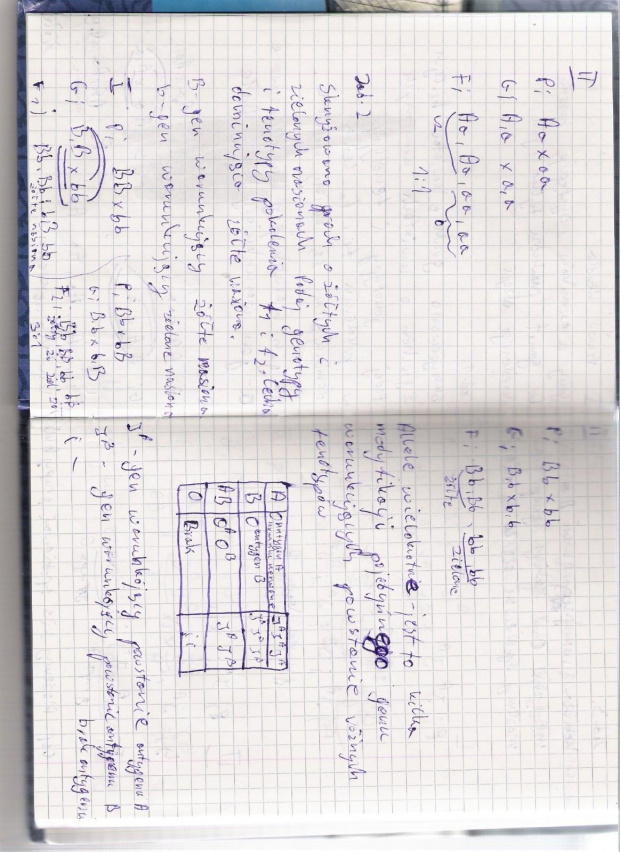 II
P; Aa x aa
G; A,a x a,a
F; Aa, Aa, aa, aa
1:1
Zad. 2
Skrzyżowano groch o żółtych i
zielonych nasionach. Podaj genotypy
i fenotypy pokolenia F1 i F2. Cecha
dominująca żółte nasiona.
B- gen warunkujący żółte nasiona
b- gen warunkujący zielone nasiona
I P; BB x bb
G; B,B x b,b
F1) Bb, Bb, bB, bb
żółte nasiona
P; Bb x bB
G; B,b x b,B
F2;
3:1
II
P; Bb x bb
G; B,b x b,b
F; Bb, Bb, bb, bb
żółte zielone
Allele wielokrotne - jest to kilka
modyfikacji pojedynczego genu
warunkujących powstanie różnych
fenotypów
A antygen A
B antygen B
AB
O Brak ii
I^A - gen warunkujący powstanie antygenu A
I^B - gen warunkujący powstanie antygenu B
i - brak antygenu